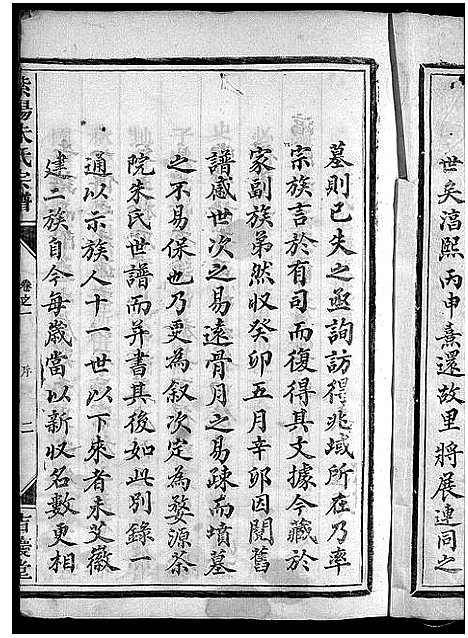 世矣淳熙丙申熹還故里將展連同之
墓則已失之亟詢訪得兆域所在乃率
宗族言於有司而復得其文據今藏於
家副族弟然収癸卯五月辛卯因閱舊
譜感世次之易遠骨月之易疎而墳墓
之不易保也乃更為叙次定為婺源茶
院朱氏世譜而并書其後如此別錄一
通以示族人十一世以下來者未艾徽
建二族自今每歲當以新収名數更相
紫陽朱氏宗譜 卷之一 序 二